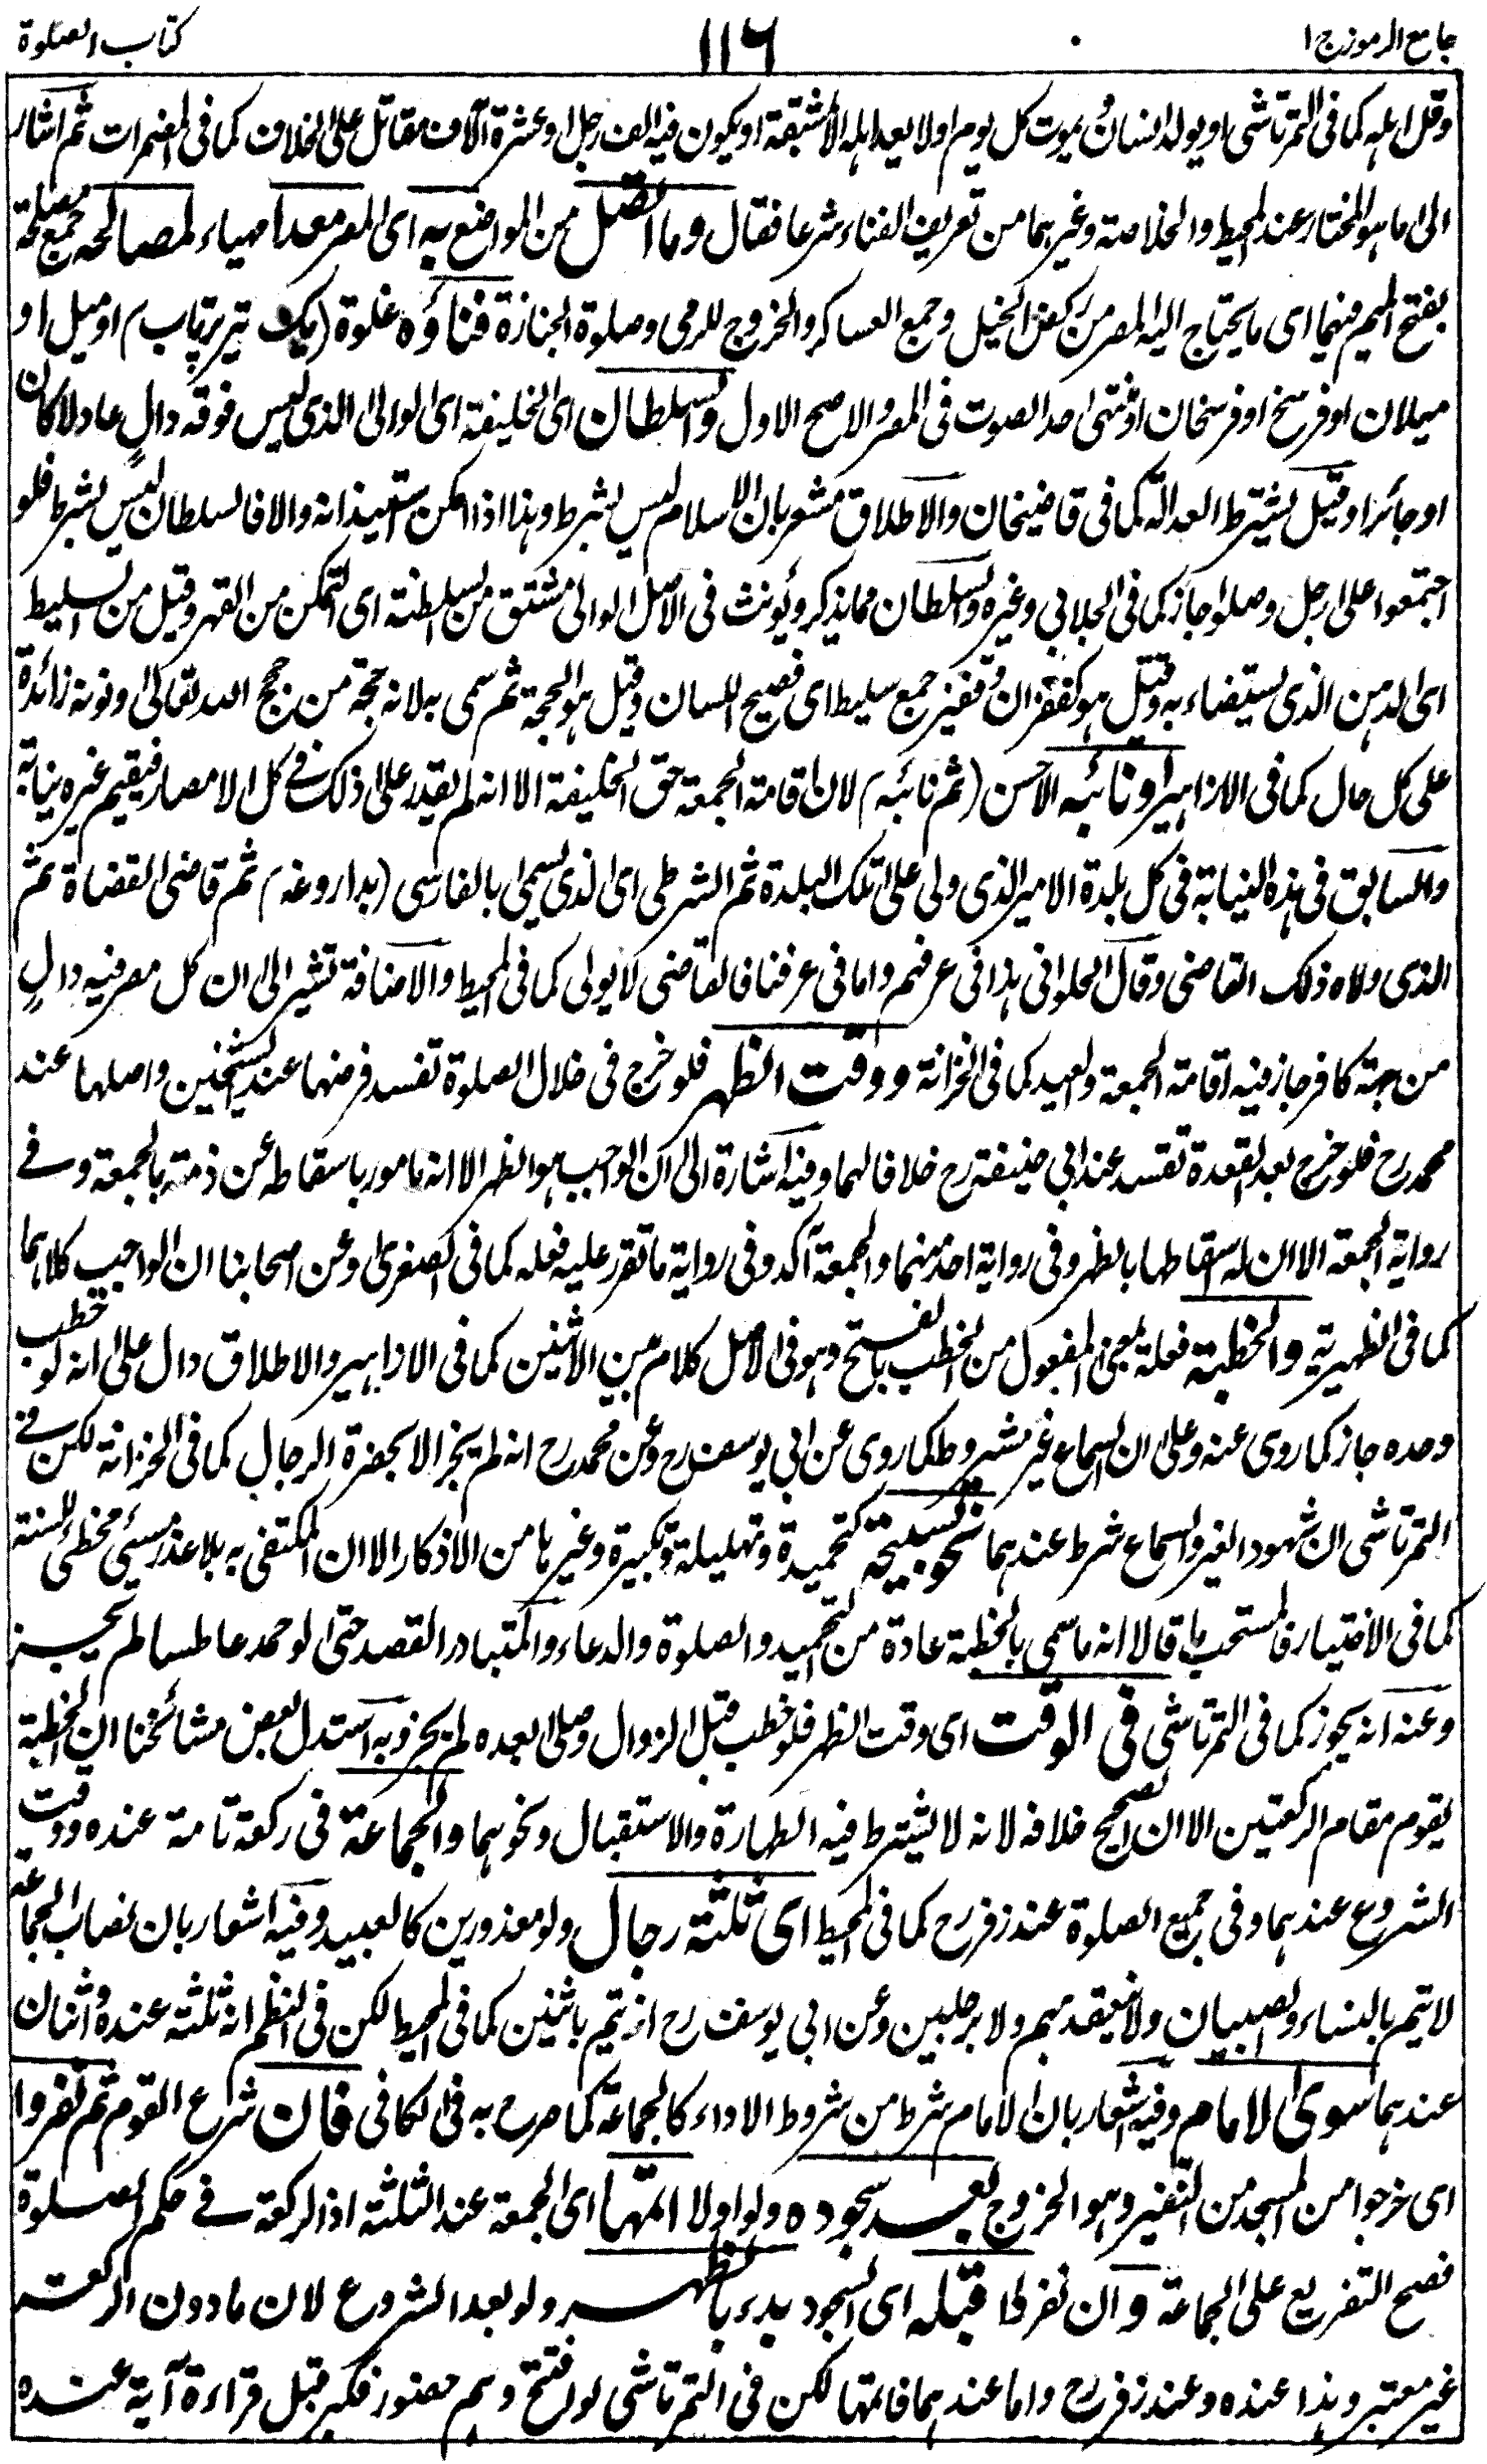 جامع الرموز ج ١
١١٦
كتاب الصلوة
وقل اهله كما فى التمرتاشى او يولد انسان ويموت كل يوم او لا يعد اهله الا بمشقة او يكون فيه الف رجل او عشرة آلاف مقاتل على الخلاف كما فى المضمرات ثم اشار
الى ما هو المختار عند المحيط والخلاصة وغيرهما من تعريف الفناء شرعا فقال وما اتصل من المواضع به اى المصر معدا مهياء لمصالحه جمع مصلحة
بفتح الميم فيهما اى ما يحتاج اليه المصر من ركض الخيل وجمع العساكر والخروج للرمى وصلوة الجنازة فناؤه غلوة (يك تير پرتاب) او ميل او
ميلان او فرسخ او فرسخان او منتهى حد الصوت فى المصر والاصح الاول والسلطان اى الخليفة اى الوالى الذى ليس فوقه والٍ عادلا كان
او جائرا وقيل يشترط العدالة كما فى قاضيخان والاطلاق مشعر بان الاسلام ليس بشرط وهذا اذا امكن استيذانه والا فالسلطان ليس بشرط فلو
اجتمعوا على رجل وصلوا جاز كما فى الجلابى وغيره والسلطان مما يذكر ويؤنث فى الاصل الوالى مشتق من السلطنة اى التمكن من القهر وقيل من السليط
اى الدهن الذى يستضاء به وقيل هو كقفزان وقفيز جمع سليط اى فصيح اللسان وقيل هو الحجة ثم سمى به لانه حجة من حجج الله تعالى ونونه زائدة
على كل حال كما فى الازاهير او نائبه الاحسن (ثم نائبه) لان اقامة الجمعة حق الخليفة الا انه لم يقدر على ذلك فى كل الامصار فيقيم غيره نيابة
والسابق فى هذه النيابة فى كل بلدة الامير الذى ولى على تلك البلدة ثم الشرطى اى الذى يسمى بالفارسى (بداروغه) ثم قاضى القضاة ثم
الذى ولاه ذلك القاضى وقال الحلوانى هذا فى عرفهم واما فى عرفنا فالقاضى لا يولى كما فى المحيط والاضافة تشير الى ان كل مصر فيه والٍ
من جهة كافر جاز فيه اقامة الجمعة والعيد كما فى الخزانة ووقت الظهر فلو خرج فى خلال الصلوة تفسد فرضها عند الشيخين واصلها عند
محمد رح فلو خرج بعد القعدة تفسد عند ابى حنيفة رح خلافا لهما وفيه اشارة الى ان الواجب هو الظهر الا انه مامور باسقاطه عن ذمته بالجمعة وفى
رواية الجمعة الا ان له اسقاطها بالظهر وفى رواية احد منهما والجمعة آكد وفى رواية ما تقرر عليه فعله كما فى الصغرى وعن اصحابنا ان الواجب كلاهما
كما فى الظهيرية والخطبة فعلة بمعنى المفعول من الخطب بالفتح وهو فى الاصل كلام بين الاثنين كما فى الازاهير والاطلاق دال على انه لو خطب
وحده جاز كما روى عنه وعلى ان السماع غير مشروط كما روى عن ابى يوسف رح وعن محمد رح انه لم يجز الا بحضرة الرجال كما فى الخزانة لكن فى
التمرتاشى ان شهود الغير والسماع شرط عندهما نحو تسبيحة كتحميدة وتهليلة وتكبيرة وغيرها من الاذكار الا ان المكتفى به بلا عذر مسيئ مخطئ للسنة
كما فى الاختيار فالمستحب ما قالا انه ما سمى بالخطبة عادة من التحميد والصلوة والدعاء والمتبادر القصد حتى لو حمد عاطسا لم يجز
وعنه انه يجوز كما فى التمرتاشى فى الوقت اى وقت الظهر فلو خطب قبل الزوال وصلى بعده لم يجز وبه استدل بعض مشائخنا ان الخطبة
يقوم مقام الركعتين الا ان الصحيح خلافه لانه لا يشترط فيه الطهارة والاستقبال ونحوهما والجماعة فى ركعة تامة عنده ووقت
الشروع عندهما وفى جميع الصلوة عند زفر رح كما فى المحيط اى ثلثة رجال ولو معذورين كالعبيد وفيه اشعار بان نصاب الجماعة
لا يتم بالنساء والصبيان ولا ينعقد بهم ولا برجلين وعن ابى يوسف رح انه يتم باثنين كما فى المحيط لكن فى النظم انه ثلثة عنده واثنان
عندهما سوى الامام وفيه اشعار بان الامام شرط من شروط الاداء كالجماعة كما صرح به فى الكافى فان شرع القوم ثم نفروا
اى خرجوا من المسجد من النفير وهو الخروج بعد سجوده ولو اولا اتمها اى الجمعة عند الثلثة اذ الركعة فى حكم الصلوة
فصح التفريع على الجماعة وان نفروا قبله اى السجود بدء بالظهر ولو بعد الشروع لان ما دون الركعة
غير معتبر وهذا عنده وعند زفر رح واما عندهما فاتمها لكن فى التمرتاشى لو افتتح وهم حضور فكبر قبل قراءة آية عنده